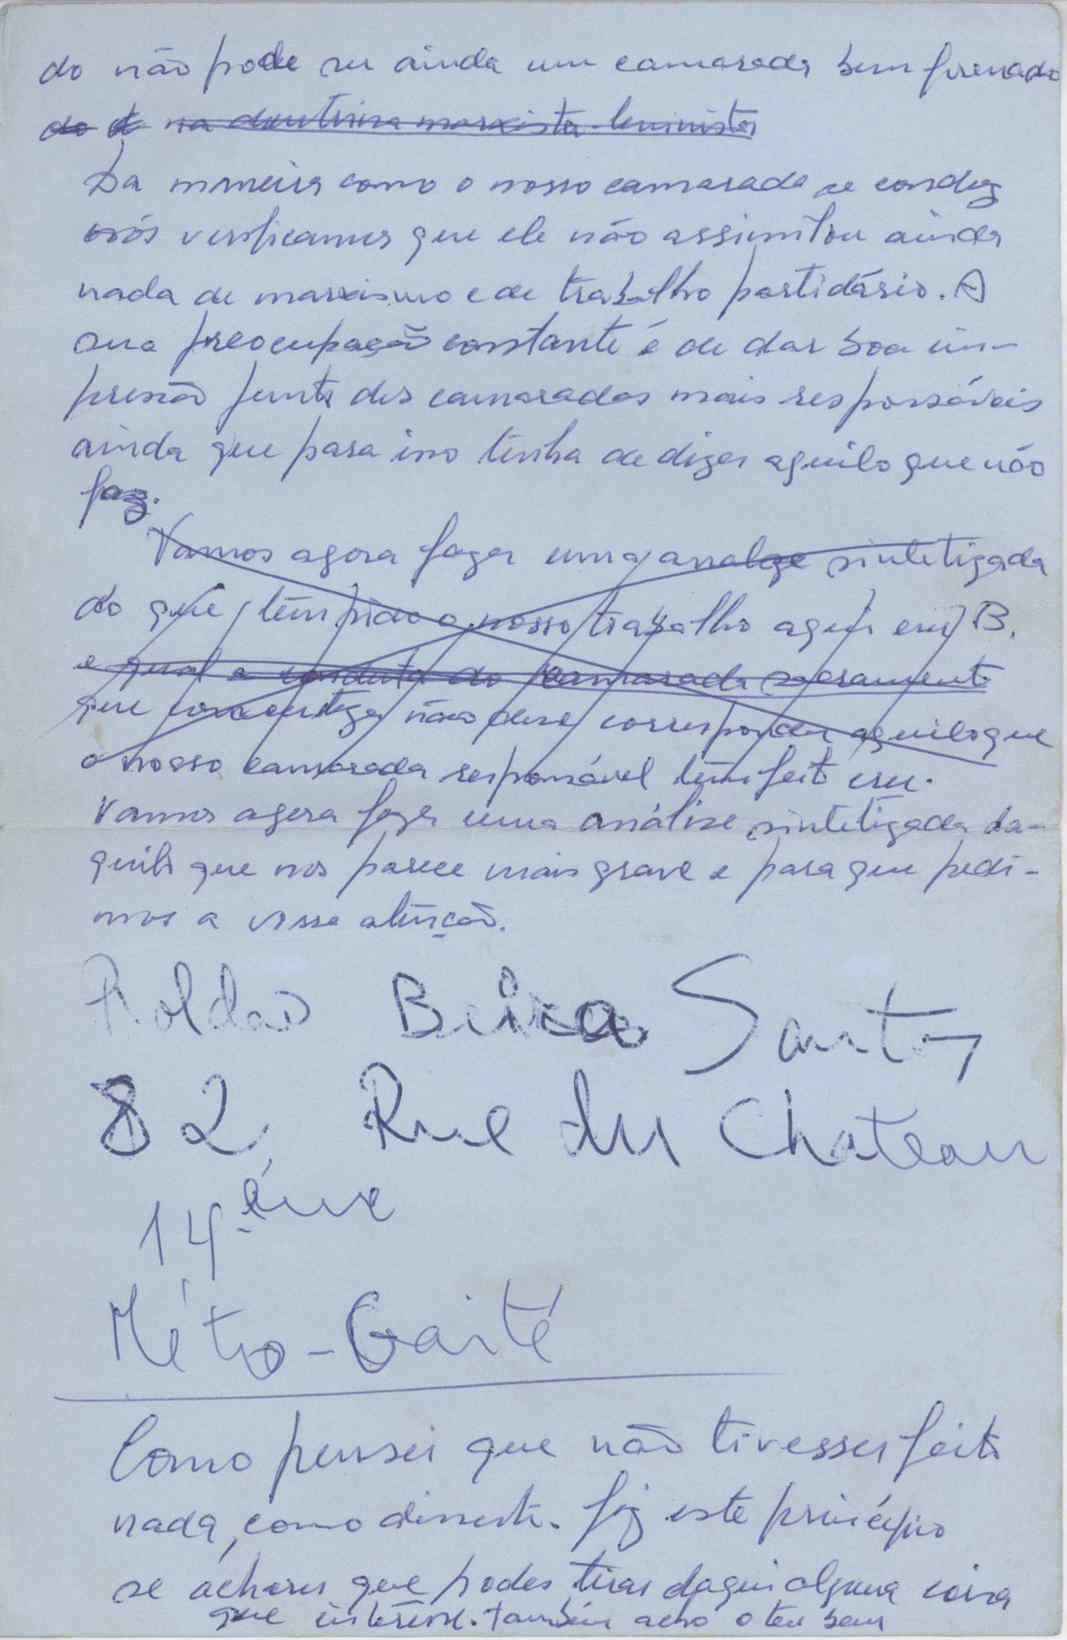 do não pode ser ainda um camarada bem formado
do d na doutrina marxista-leninista
Da maneira como o nosso camarada se conduz
nós verificamos que ele não assimilou ainda
nada de marxismo e de trabalho partidário. A
sua preocupação constante é de dar boa im-
pressão junto dos camaradas mais responsáveis
ainda que para isso tenha de dizer aquilo que não
faz.
Vamos agora fazer uma analze sintetizada
do que têm sido o nosso trabalho aqui em B.
e qual a conduta do camarada sacramento
que com certeza não deve corresponder aquilo que
o nosso camarada responsável têm feito crer.
Vamos agora fazer uma análise sintetizada da-
quilo que nos parece mais grave e para que pedi-
mos a vossa atenção.
Roldão Santos
82, Rue du Chateau
14.ème
Métro-Gaité
Como pensei que não tivesses feito
nada, como disseste. fiz este princípio
se achares que podes tirar daqui alguma coisa
que interesse. também acho o teu bem